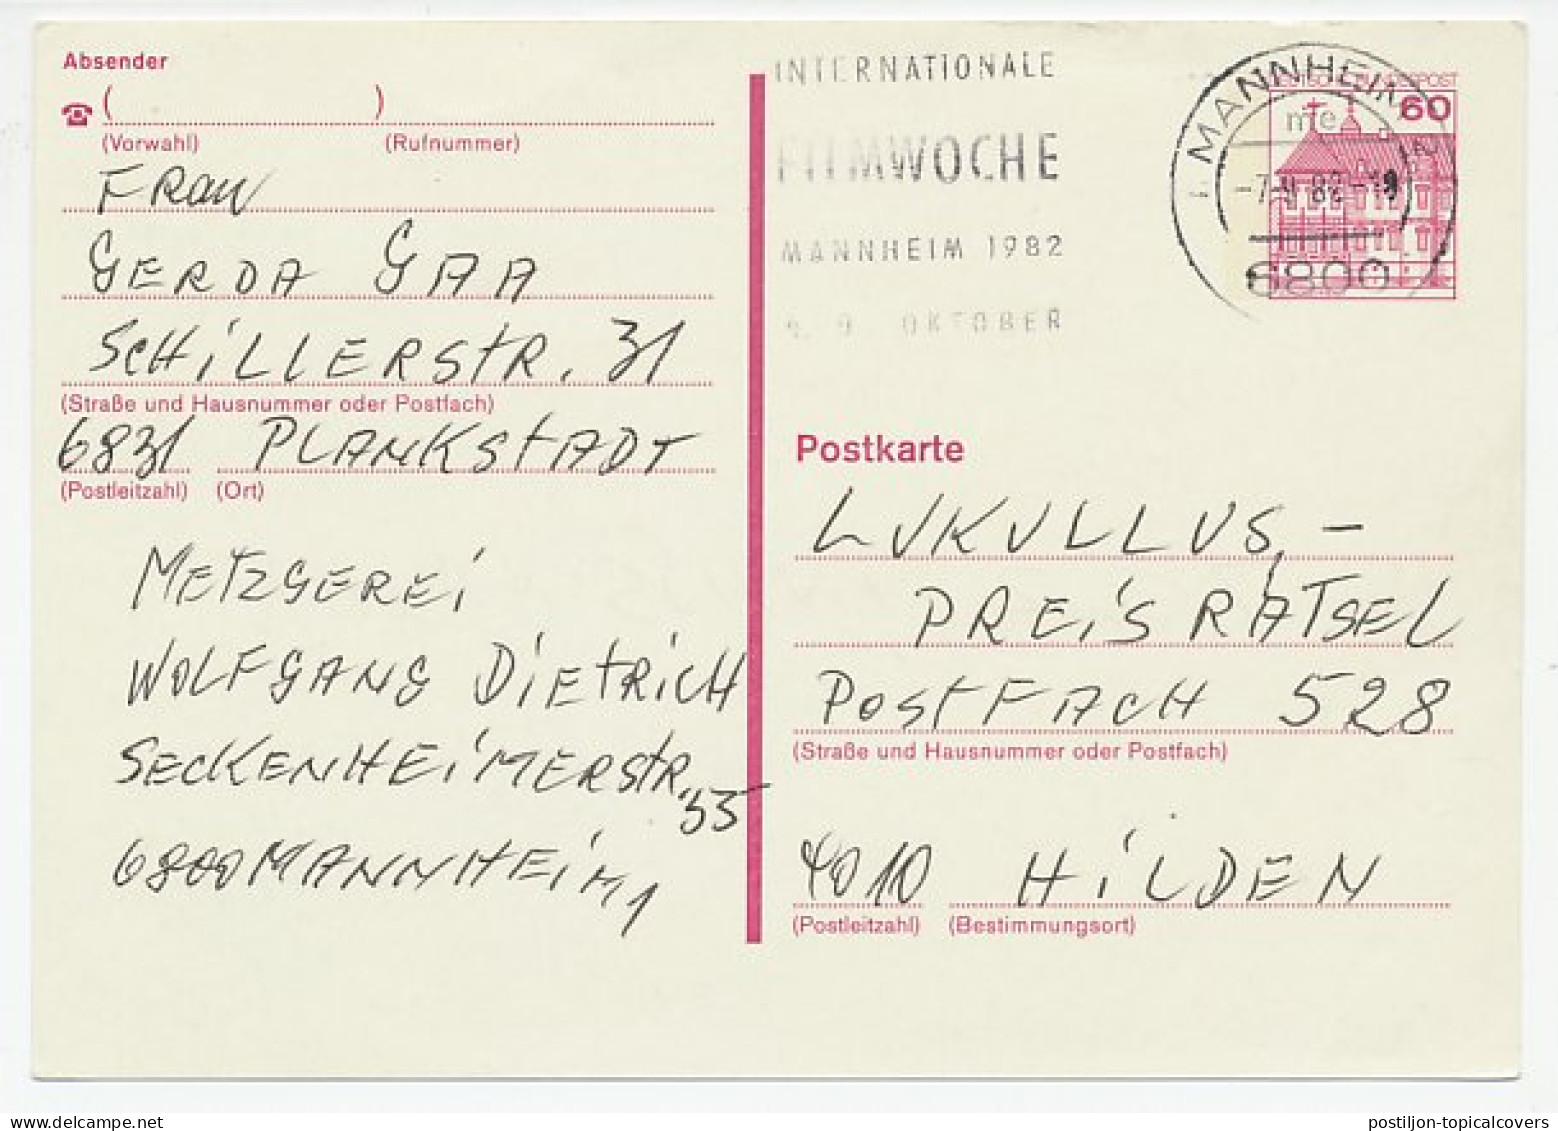 Absender
☎ ( )
(Vorwahl) (Rufnummer)
FRau
GERDA GAA
SCHiLLERStR. 31
(Straße und Hausnummer oder Postfach)
6831 PLANKStADT
(Postleitzahl) (Ort)
METZGEREi
WOLFGANG DiEtRiCH
SECKENHEiMERStR.
6800 MANNHEiM 1
INTERNATIONALE
FILMWOCHE
MANNHEIM 1982
OKTOBER
MANNHEIM
me
6800
60
Postkarte
LUKULLUS-
PREiSRÄTSEL
POStFACH 528
(Straße und Hausnummer oder Postfach)
4010 HiLDEN
(Postleitzahl) (Bestimmungsort)
postiljon-topicalcovers